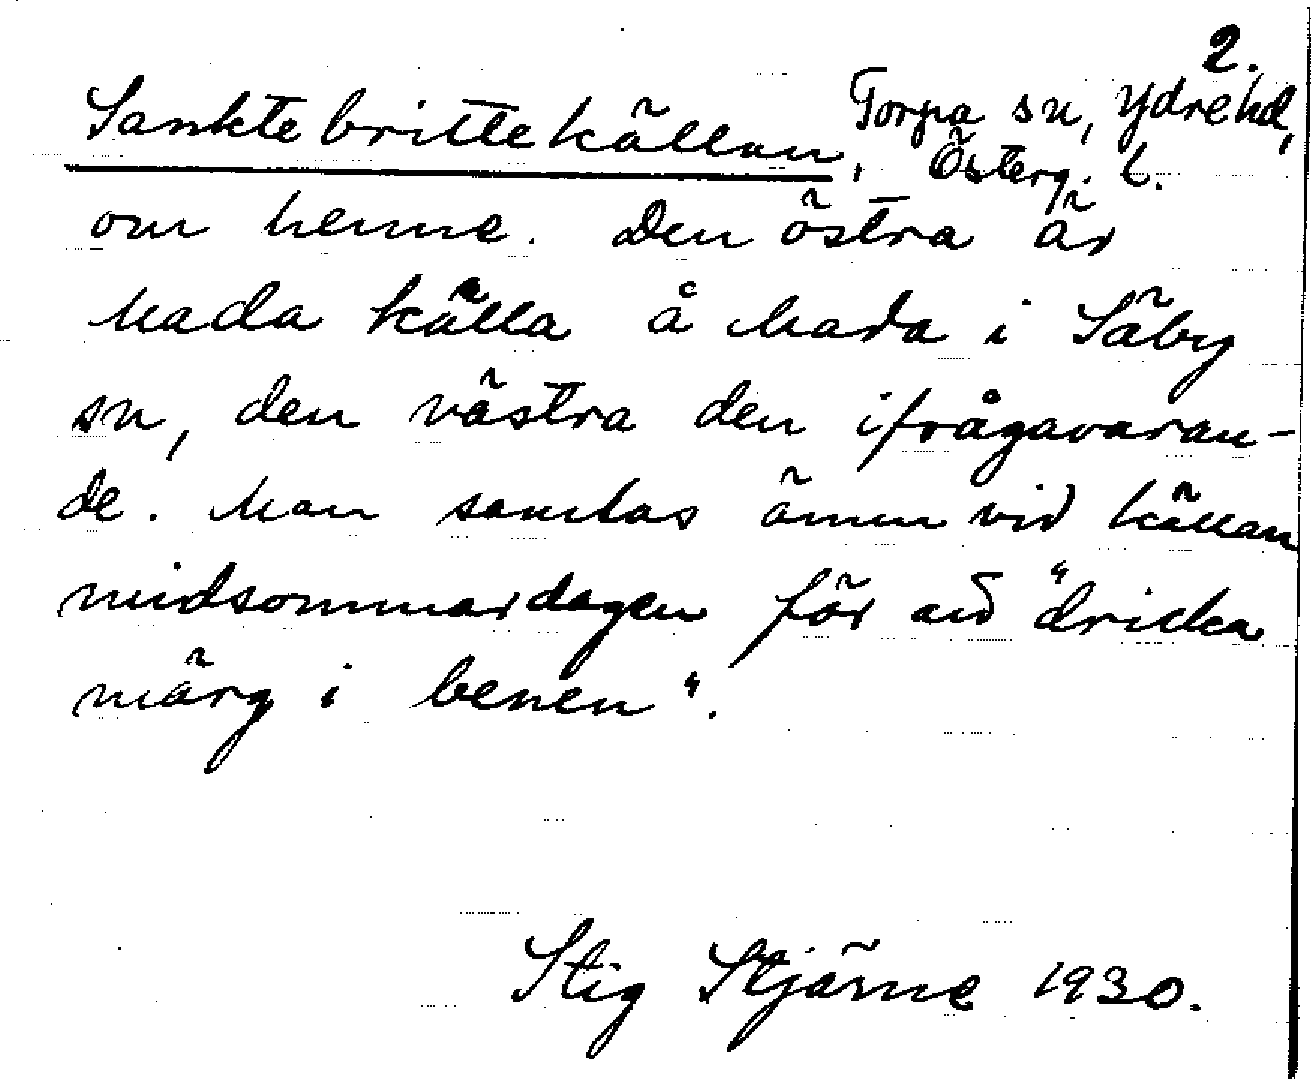 2.
Sankte britte källan, Torpa sn, Ydre hd,
Österg. l.
om henne. Den östra är
Mada källa å Mada i Säby
sn, den västra den ifrågavaran-
de. Man samlas ännu vid källan
midsommardagen för att "dricka
märg i benen".
Stig Stjärne 1930.